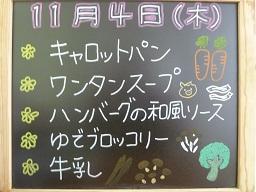 11月4日(木)
キャロットパン
ワンタンスープ
ハンバーグの和風ソース
ゆでブロッコリー
牛乳